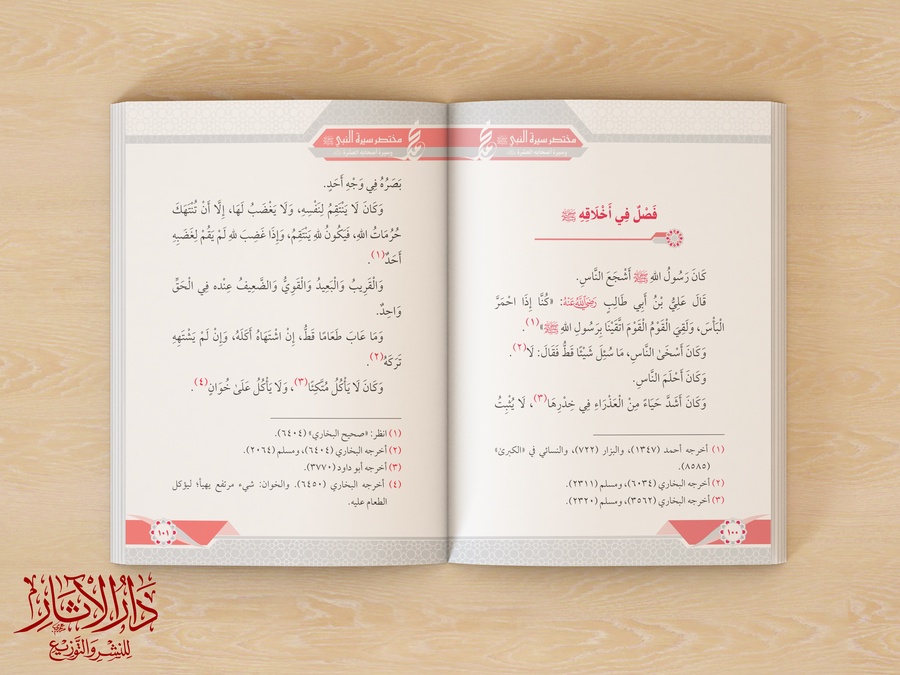 مختصر سيرة النبي ﷺ
وسيرة أصحابه العشرة
فَصْلٌ فِي أَخْلَاقِهِ ﷺ
كَانَ رَسُولُ اللهِ ﷺ أَشْجَعَ النَّاسِ.
قَالَ عَلِيُّ بْنُ أَبِي طَالِبٍ رَضِيَ اللَّهُ عَنْهُ: «كُنَّا إِذَا احْمَرَّ
الْبَأْسُ، وَلَقِيَ الْقَوْمُ الْقَوْمَ اتَّقَيْنَا بِرَسُولِ اللهِ ﷺ»(١).
وَكَانَ أَسْخَى النَّاسِ، مَا سُئِلَ شَيْئًا قَطُّ فَقَالَ: لَا(٢).
وَكَانَ أَحْلَمَ النَّاسِ.
وَكَانَ أَشَدَّ حَيَاءً مِنْ الْعَذْرَاءِ فِي خِدْرِهَا(٣)، لَا يُثْبِتُ
(١) أخرجه أحمد (١٣٤٧)، والبزار (٧٢٢)، والنسائي في «الكبرى»
(٨٥٨٥).
(٢) أخرجه البخاري (٦٠٣٤)، ومسلم (٢٣١١).
(٣) أخرجه البخاري (٣٥٦٢)، ومسلم (٢٣٢٠).
١٠٠
مختصر سيرة النبي ﷺ
وسيرة أصحابه العشرة
بَصَرُهُ فِي وَجْهِ أَحَدٍ.
وَكَانَ لَا يَنْتَقِمُ لِنَفْسِهِ، وَلَا يَغْضَبُ لَهَا، إِلَّا أَنْ تُنْتَهَكَ
حُرُمَاتُ اللهِ، فَيَكُونُ لِلهِ يَنْتَقِمُ، وَإِذَا غَضِبَ لِلهِ لَمْ يَقُمْ لِغَضَبِهِ
أَحَدٌ(١).
وَالْقَرِيبُ وَالْبَعِيدُ وَالْقَوِيُّ وَالضَّعِيفُ عِنْده فِي الْحَقِّ
وَاحِدٌ.
وَمَا عَابَ طَعَامًا قَطُّ، إِنْ اشْتَهَاهُ أَكَلَهُ، وَإِنْ لَمْ يَشْتَهِهِ
تَرَكَهُ(٢).
وَكَانَ لَا يَأْكُلُ مُتَّكِئًا(٣)، وَلَا يَأْكُلُ عَلَى خُوَانٍ(٤).
(١) انظر: «صحيح البخاري» (٦٤٠٤).
(٢) أخرجه البخاري (٦٤٠٤)، ومسلم (٢٠٦٤).
(٣) أخرجه أبو داود (٣٧٧٠).
(٤) أخرجه البخاري (٦٤٥٠). والخوان: شيء مرتفع يهيأ؛ ليؤكل
الطعام عليه.
١٠١
دَارُ الآثَارِ
لِلنَّشْرِ وَالتَّوْزِيعِ